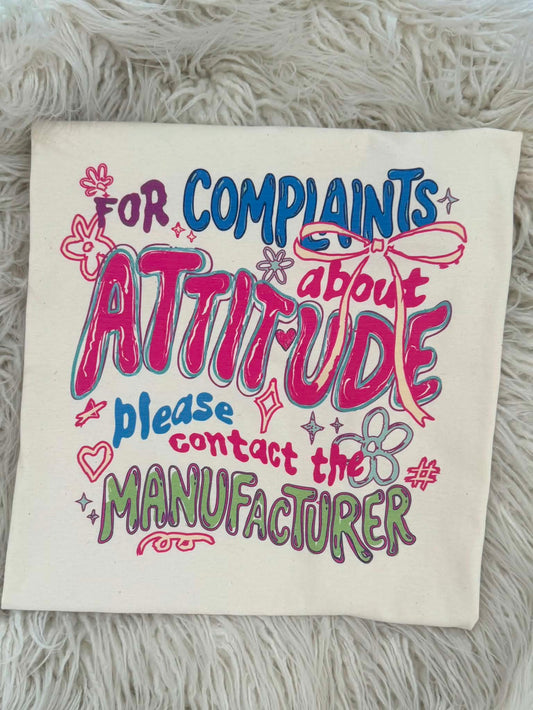 FOR COMPLAINTS
about
ATTITUDE
please
contact the
MANUFACTURER
#